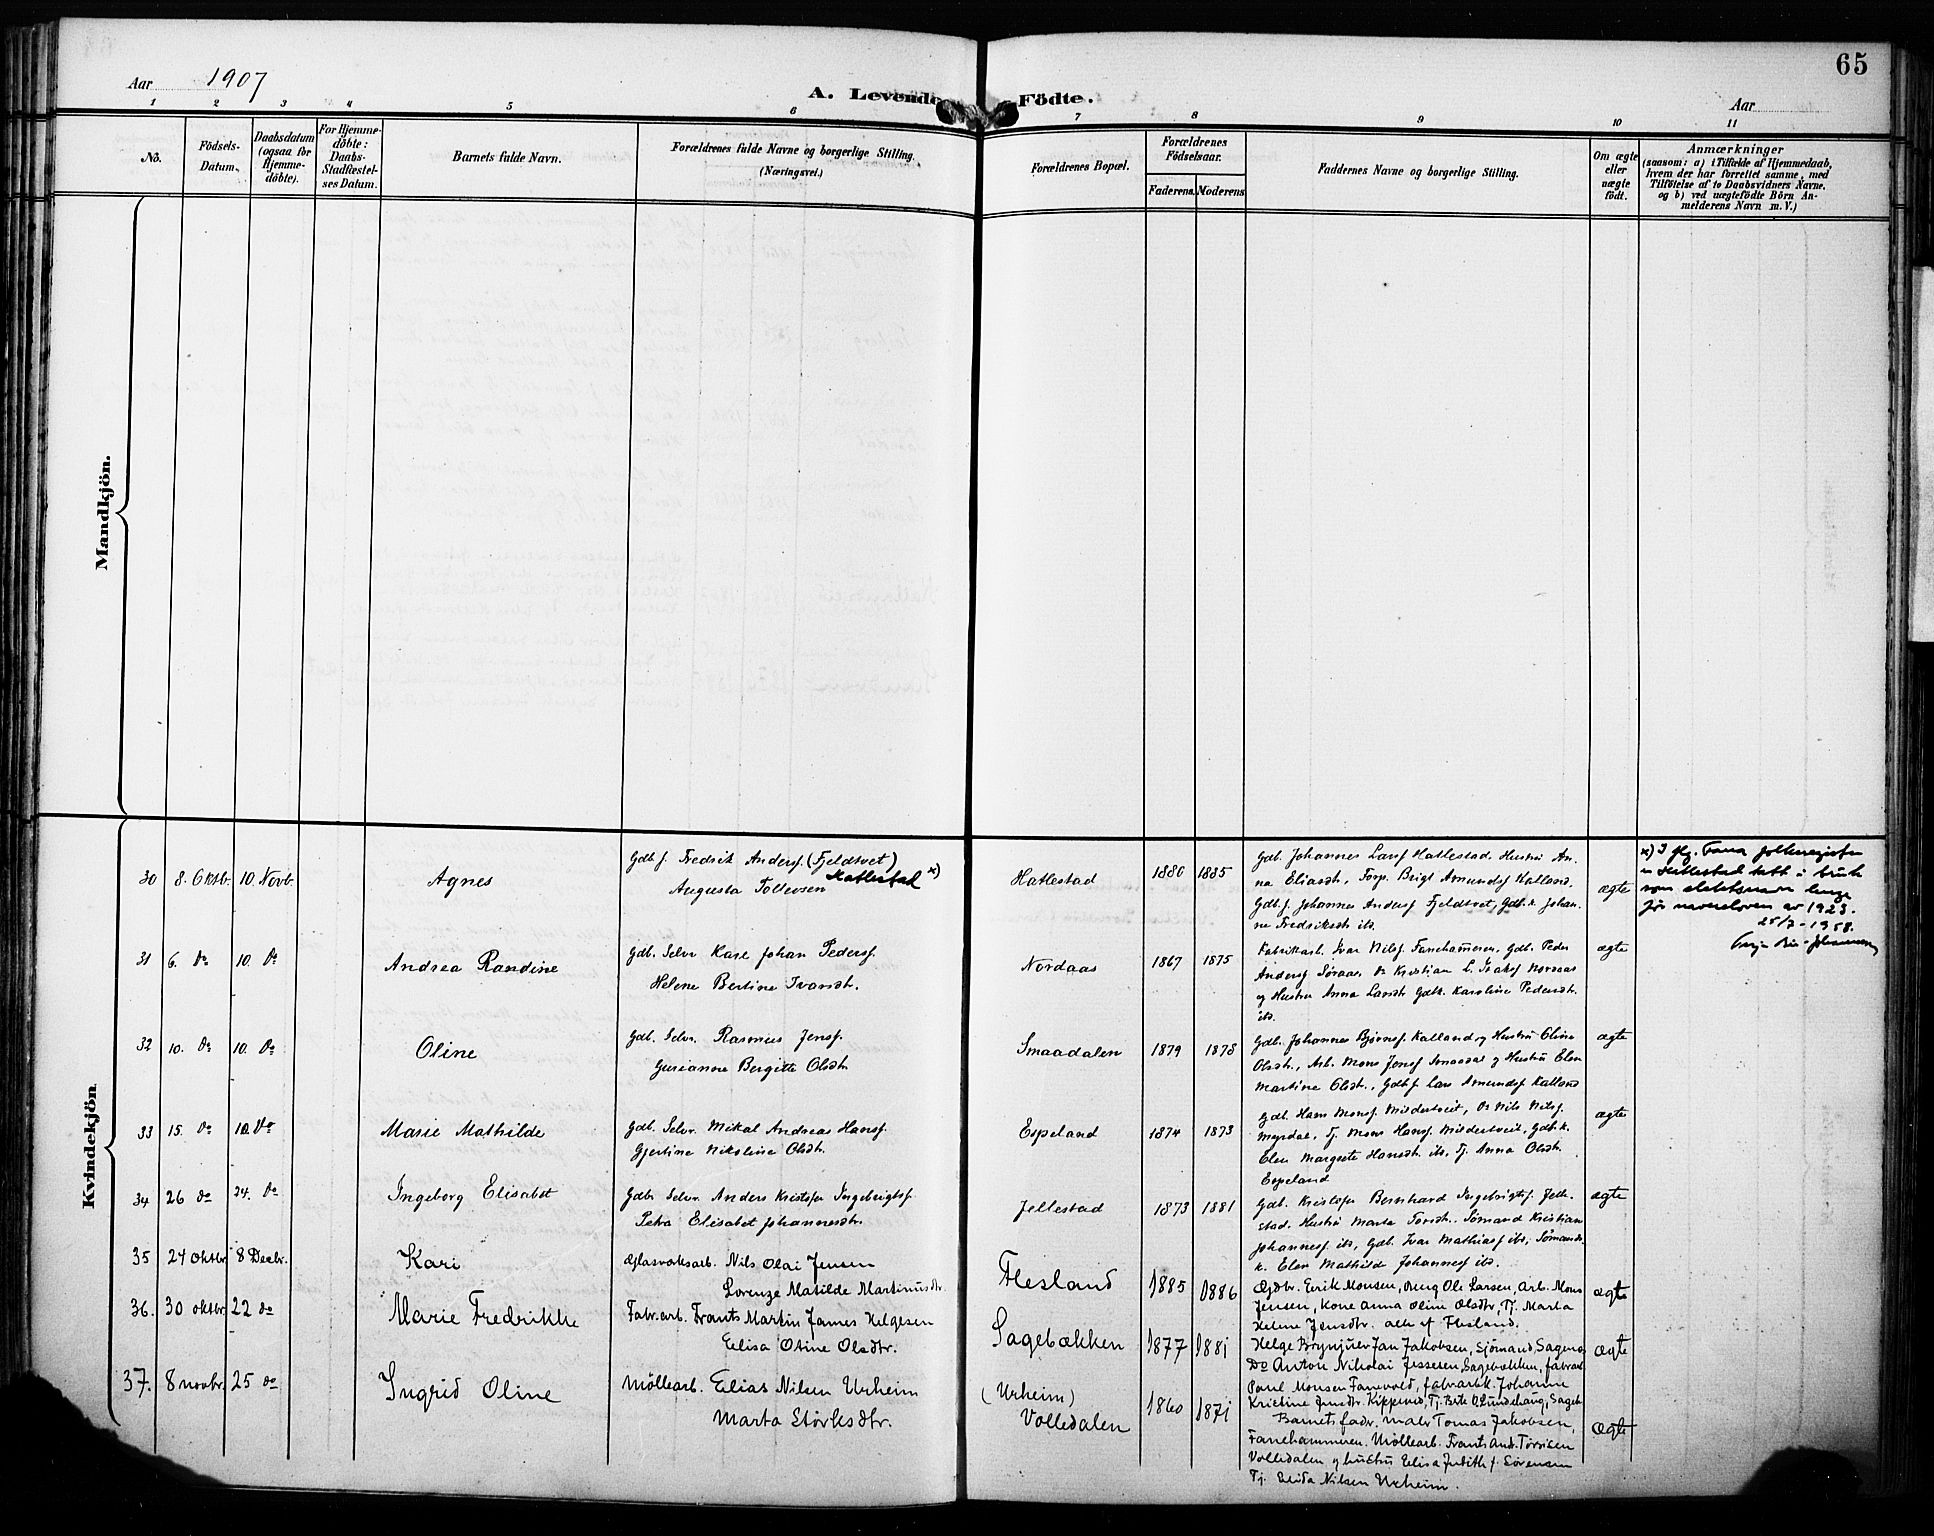 65
Aar 1907
A. Levende Födte.
Aar
1 2 3 4 5 6 7 8 9 10 11
No.
Födsels-
Datum.
Daabsdatum
(ogsaa for
Hjemme-
døbte).
For Hjemme-
döbte:
Daabs-
Stadfæstel-
ses Datum.
Barnets fulde Navn.
Forældrenes fulde Navne og borgerlige Stilling.
(Næringsvei.)
Forældrenes Bopæl.
Forældrenes
Födselsaar.
Faderens. Moderens.
Faddernes Navne og borgerlige Stilling.
Om ægte
eller
uægte
født.
Anmærkninger
(saasom: a) i Tilfælde af Hjemmedaab,
hvem der har forrettet samme, med
Tilføielse af to Daabsvidners Navne,
og b) ved uægtefödte Börn An-
melderens Navn m. V.)
Mandkjön.
Kvindekjön.
30 8. Oktbr. 10. Novb.
Agnes
Gdb.f. Fredrik Andersf. (Fjeldtvet)
Hatlestad x)
Augusta Tollevsen
Hatlestad
1880 1885
Gdb. Johannes Larsf Hatlestad. Hustru An-
na Eliasdt., Forp. Brigt Amundsf Kalland.
Gdb.f. Johannes Andersf Fjeldtvet, Gdb.k. Johan-
ne Fredriksdt ib.
ægte
x) I flg. Fana folkeregister
er Hatlestad tatt i bruk
som slektsnavn lenge
før navneloven av 1923.
25/7-1958.
31 6. Do 10. Do
Andrea Randine
Gdb. Selv. Karl Johan Pedersf.
Helene Bertine Ivarsdt.
Nordaas
1867 1875
Fabrikarb. Ivar Nilsf. Fanehammeren, Gdb. Peder
Andersf Søraas, Do Kristian L. Isaksf Nordaas
og Hustru Anna Larsdt Gdbk. Karoline Pedersdt.
ib.
ægte
32 10. Do 10. Do
Oline
Gdb. Selv. Rasmus Jensf.
Gurianne Bergitte Olsdt.
Smaadalen
1879 1878
Gdb. Johannes Bjørnsf. Kalland og Hustru Oline
Olsdt., Arb. Mons Jensf Smaadal og Hustru Elen
Martine Olsdt., Gdb.f. Lars Amundsf Kalland
ægte
33 15. Do 10. Do
Marie Mathilde
Gdb. Selv. Mikal Andreas Hansf.
Gjertine Nikoline Olsdt.
Espeland
1874 1873
Gdb. Hans Monsf. Mildestveit, Do Nils Nilsf.
Myrdal, Tj. Mons Hansf. Mildestveit, Gdb.k.
Elen Margrete Hansdt. ib., Tj. Anna Olsdt.
Espeland
ægte
34 26 Do 24. Do
Ingeborg Elisabet
Gdb. Selv. Anders Kristofer Ingebrigtsf.
Petra Elisabet Johannesdt.
Jellestad
1873 1881
Gdb. Kristofer Bernhard Ingebrigtsf. Jelle-
stad. Hustru Marta Torsdt. Sømand Kristian
Johannesf. ib., Gdb. Ivar Mathiasf ib., Sømands-
k. Elen Mathilde Johannesf ib.
ægte
35 24 Oktbr. 8 Decbr.
Kari
Glasværksarb. Nils Olai Jensen
Lorenze Matilde Martinusdtr.
Flesland
1885 1886
Gdbr. Eerik Monsen, Ung. Ole Larsen, Arb. Mons
Jensen, Kone Anna Oline Olsdtr, Tj. Marta
Helene Jensdtr. alle af Flesland.
ægte
36. 30 oktbr. 22 do
Marie Fredrikke
Fabr.arb. Frants Martin James Helgesen
Elisa Oline Olsdtr.
Sagebækken
1877 1881
Helge Brynjulf Jan Jakobsen, Sjømand, Sagen
Do Anton Nikolai Jessesen Sagebækken, fabrarb.
Paul Monsen Fanevold, fabrarb.k. Johanne
Kristine Jensdtr. Kippervid, Tj. Brite O. Lundehaug, Sageb.
ægte
37. 8 novbr. 25 do
Ingrid Oline
Møllearb. Elias Nilsen Urheim
Marta Størksdtr.
(Urheim)
Volledalen
1860 1871
Barnets fadr. maler Tomas Jakobsen,
Fanehammeren. Møllearb. Frants And. Torrisen
Volledalen og hustru Elisa Judith f. Sørensen
Tj. Elida Nilsen Urheim.
ægte